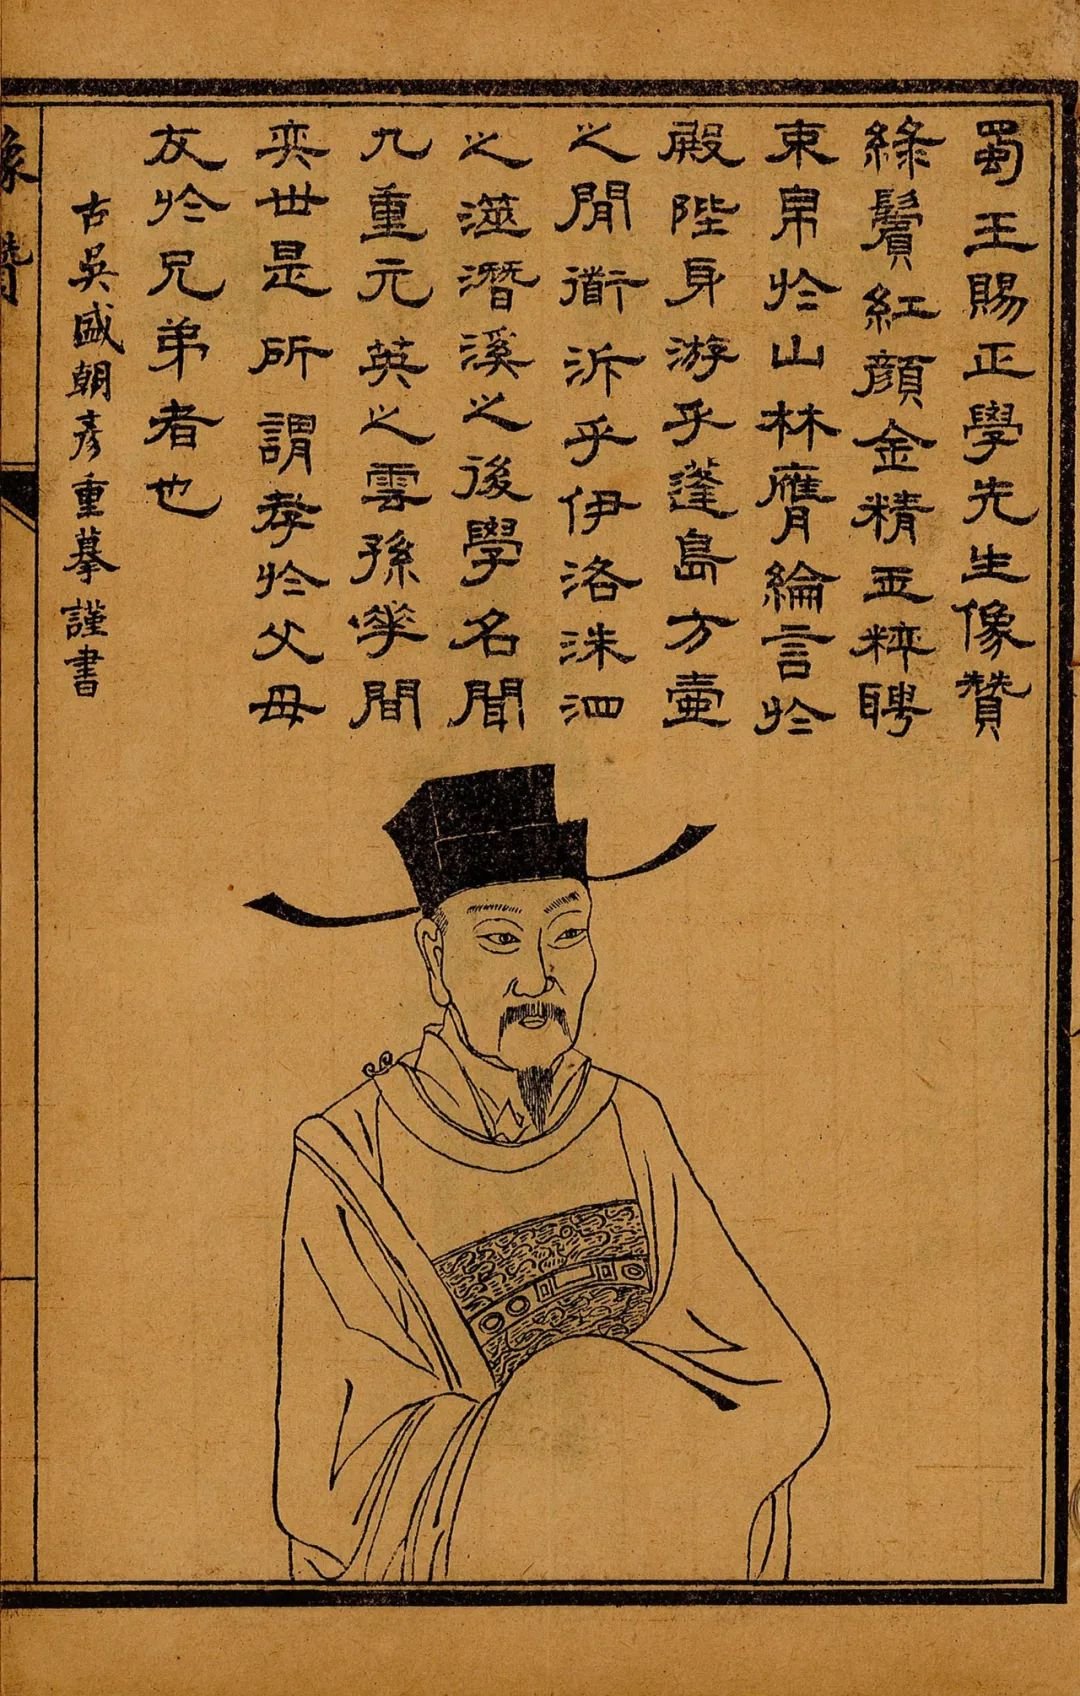 蜀王賜正學先生像贊
綠鬢紅顏金精玉粹聘
束帛於山林膺綸言於
殿陛身游乎蓬島方壺
之閒衟泝乎伊洛洙泗
之澨潛溪之後學名聞
九重元英之雲孫間
奕世是所謂孝於父母
友於兄弟者也
古吳盛朝彥重摹謹書
像贊